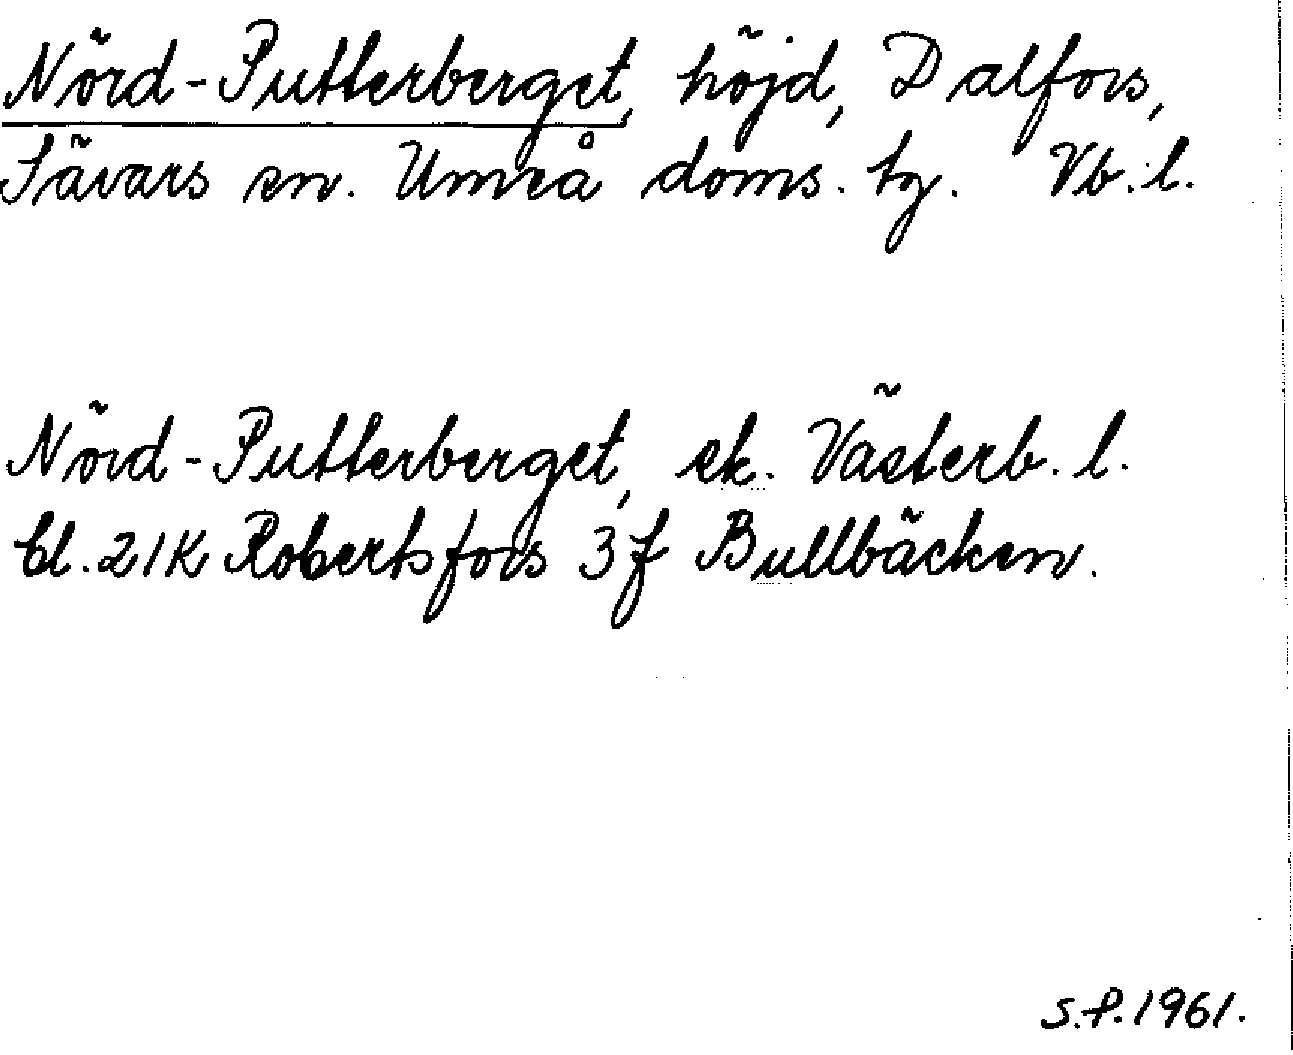 Nörd-Putterberget, höjd, Dalfors,
Sävars sn. Umeå doms. tg. Vb. l.
Nörd-Putterberget, ek. Västerb. l.
bl. 21K Robertsfors 3f Bullbäcken.
S.P. 1961.